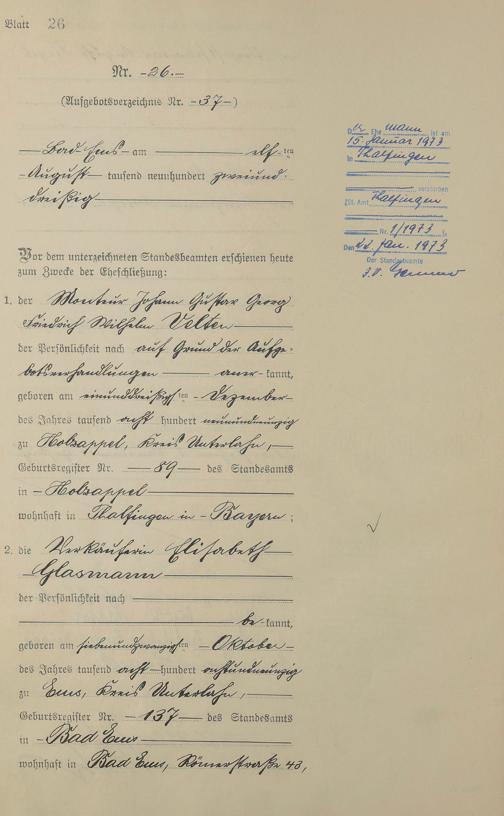 Blatt 26
Nr. -26.-
(Aufgebotsverzeichnis Nr. -37-)
Bad Ems am elften
August tausend neunhundert zweiund-
dreißig
Vor dem unterzeichneten Standesbeamten erschienen heute
zum Zwecke der Eheschließung:
1. der Monteur Johann Gustav Georg
Friedrich Wilhelm Velten
der Persönlichkeit nach auf Grund der Aufge-
botsverhandlungen aner kannt,
geboren am einunddreißigsten Dezember
des Jahres tausend acht hundert neunundneunzig
zu Holzappel, Kreis Unterlahn,
Geburtsregister Nr. 89 des Standesamts
in Holzappel
wohnhaft in Thalfingen in Bayern;
2. die Verkäuferin Elisabeth
Glasmann
der Persönlichkeit nach
be kannt,
geboren am siebenundzwanzigsten Oktober
des Jahres tausend acht hundert achtundneunzig
zu Ems, Kreis Unterlahn,
Geburtsregister Nr. 137 des Standesamts
in Bad Ems
wohnhaft in Bad Ems, Römerstraße 43,
Ehemann ist am
15. Januar 1973
in Thalfingen
verstorben
Sta. Amt Thalfingen
Nr. 1/1973
Den 22. Jan. 1973
Der Standesbeamte